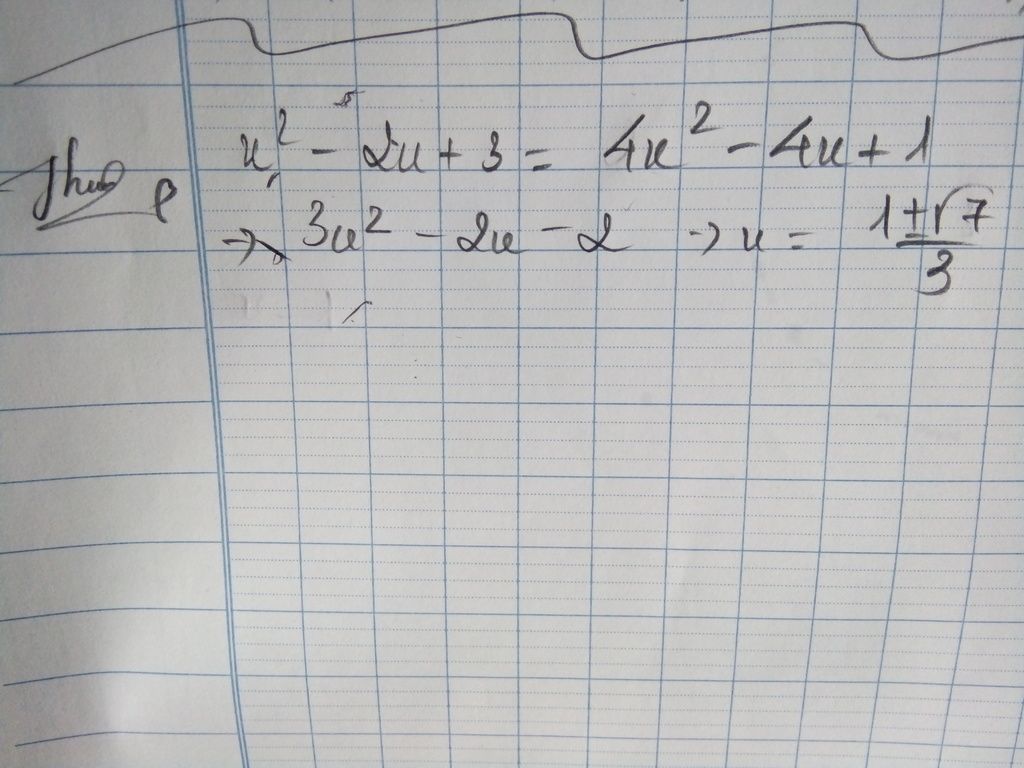 x² - 2x + 3 = 4x² - 4x + 1
→ 3x² - 2x - 2 → x = (1 ± √7)/3